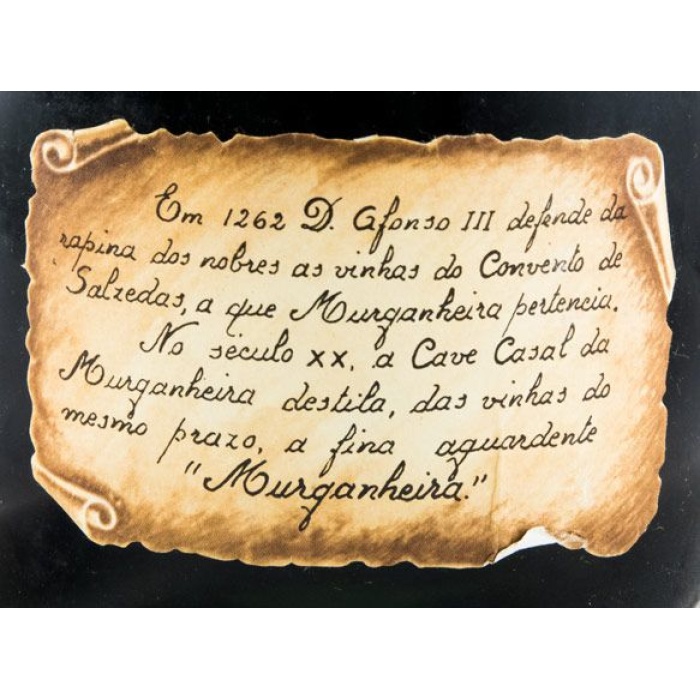 Em 1262 D. Afonso III defende da
rapina dos nobres as vinhas do Convento de
Salzedas, a que Murganheira pertencia.
No século xx, a Cave Casal da
Murganheira destila, das vinhas do
mesmo prazo, a fina aguardente
"Murganheira."